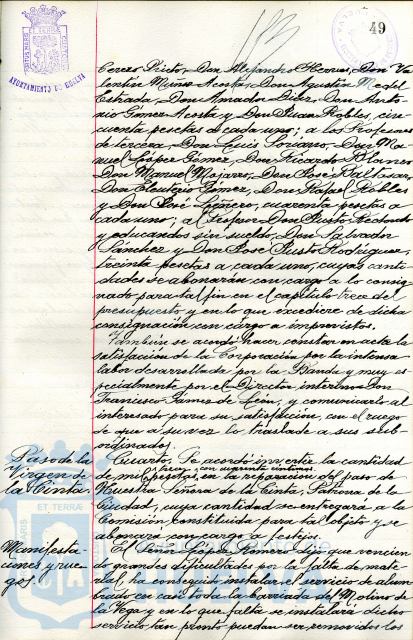 49
AYUNTAMIENTO DE HUELVA
Cerezo Prieto, Don Alejandro Herms, Don Va-
lentín Muñoz Acosta, Don Agustín Medel
Estrada, Don Amador Díaz, Don Anto-
nio Gómez Acosta y Don Juan Robles, cin-
cuenta pesetas a cada uno; a los Profesores
de tercera, Don Luis Soriano, Don Ma-
nuel López Gómez, Don Ricardo Blanes
Don Manuel Mojarro, Don José Baltasar,
Don Eleuterio Gómez, Don Rafael Robles
y Don José Romero, cuarenta pesetas a
cada uno; al Don Justo
y educandos sin sueldo, Don Salvador
Sánchez y Don José Justo Rodríguez,
treinta pesetas a cada uno, cuyas canti-
dades se abonarán con cargo a lo consig-
nado para tal fin en el capítulo trece del
presupuesto y en lo que excediere de dicha
consignación con cargo a imprevistos.
También se acordó hacer constar en acta la
satisfacción de la Corporación por la intensa
labor desarrollada por la Banda y muy es-
pecialmente por el Director interino Don
Francisco Gómez de León, y comunicarlo al
interesado para su satisfacción, con el ruego
de que a su vez lo traslade a sus sub-
ordinados.
Paso de la
Virgen de
la Cinta.
Cuarto. Se acordó invertir la cantidad
de mil pesetas, en la reparación del paso de
Nuestra Señora de la Cinta, Patrona de la
Ciudad, cuya cantidad se entregará a la
Comisión constituida para tal objeto y se
abonará con cargo a festejos.
Manifesta-
ciones y rue-
gos.
El Señor López Romero dijo que vencien-
do grandes dificultades por la falta de mate-
rial, ha conseguido instalar el servicio de alum-
brado en casi toda la barriada del Molino de
la Vega y en lo que falta se instalará dicho
servicio tan pronto puedan ser removidos los